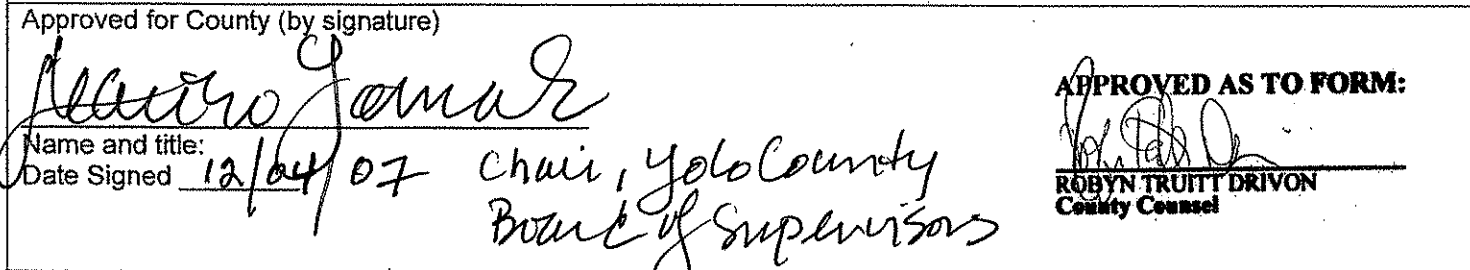 Approved for County (by signature)
Name and title:
Date Signed 12/04/07 Chair, Yolo County
Board of Supervisors
APPROVED AS TO FORM:
ROBYN TRUITT DRIVON
County Counsel